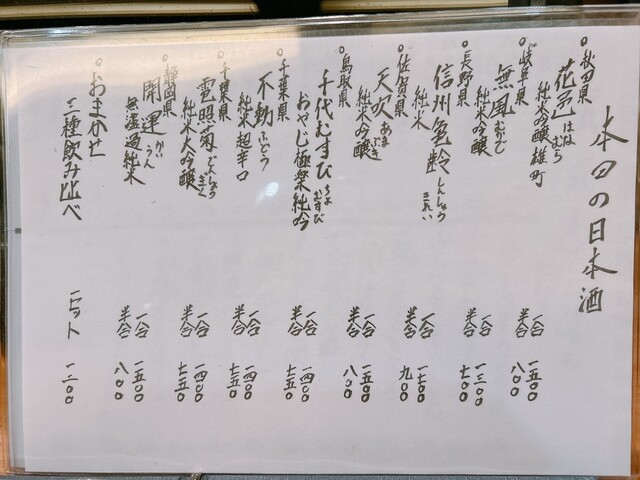 本日の日本酒
○秋田県
花邑 はなむら
純米吟醸雄町
一合 一五〇〇
半合 八〇〇
○岐阜県
無風 むかで
純米吟醸
一合 一三〇〇
半合 七〇〇
○長野県
信州亀齢 しんしゅうきれい
純米
一合 一七〇〇
半合 九〇〇
○佐賀県
天吹 あまぶき
純米吟醸
一合 一五〇〇
半合 八〇〇
○鳥取県
千代むすび ちよむすび
おやじ極楽純吟
一合 一四〇〇
半合 七五〇
○千葉県
不動 ふどう
純米超辛口
一合 一四〇〇
半合 七五〇
○千葉県
電照菊 でんしょうぎく
純米大吟醸
一合 一四〇〇
半合 七五〇
○静岡県
開運 かいうん
無濾過純米
一合 一五〇〇
半合 八〇〇
○おまかせ
三種飲み比べ
一セット 一三〇〇